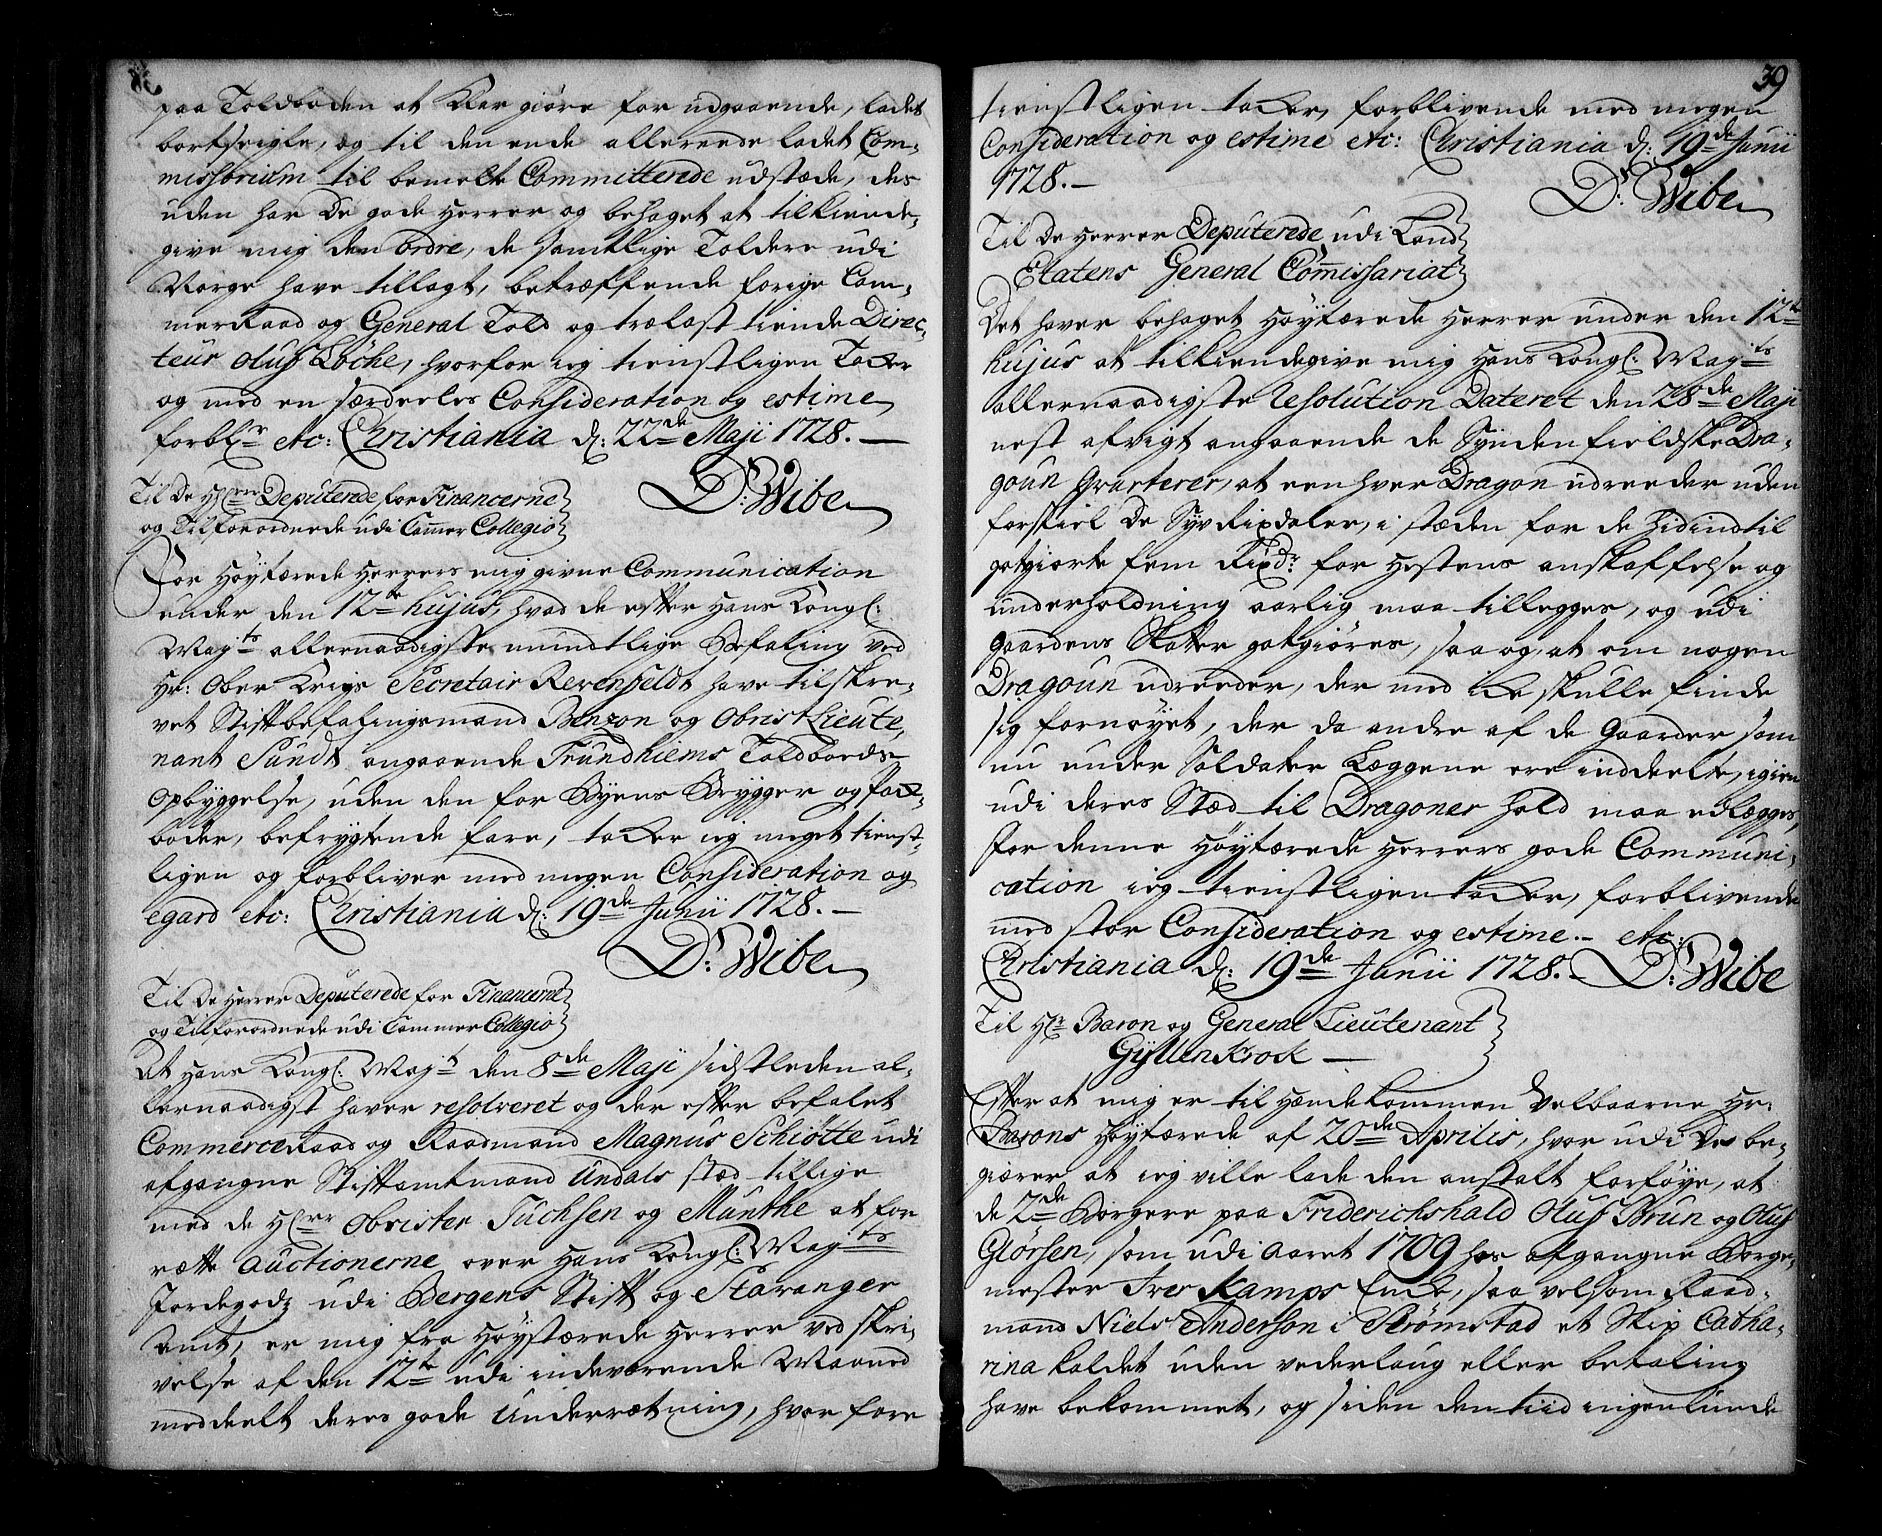 paa Toldboden at klargiøre for udgaaende, ladet
bortseigle, og til den ende allereede ladet Com-
missorium til bemelte Committerede udstæde, des
uden har De gode Herrer og behaget at tilkiende-
give mig den ordre, de samtlige Toldere udi
Norge have tillagt, betræffende forige Com-
merRaad og General Told og trælast tiende Direc-
teur Oluf Löche, hvorfor ieg tienstligen Tacker
og med en særdeeles Consideration og estime
forblr etc: Christiania d: 22de Maji 1728.—
D: Wibe
Til De Hrrer Deputerede for Financerne
og Tilforordnede udi Cammer Collegio
For Høytærede Herrers mig givne Communication
under den 12te hujus, hvad de efter Hans Kongl:
Mayts allernaadigste mundtlige Befaling ved
Hr: Ober Krigs Secretair Revenfeldt have tilskre-
vet Stiftbefalingsmand Benzon og ObristLieute-
nant Sundt angaaende Trundhiems Toldboeds
Opbyggelse, uden den for Byens Brygger og Pack-
boder, befrygtende fare, tacker ieg meget tienst-
ligen og forbliver med megen Consideration og
egard etc: Christiania d: 19de Junii 1728.—
D: Wibe
Til De Herrer Deputerede for Financerne
og Tilforordnede udi Cammer Collegio
At Hans Kongl: Mayt den 8de Maji sidstleden al-
lernaadigst haver resolveret og der efter befalet
CommerceRaad og Raadmand Magnus Schiøtte udi
afgangne Stiftamtmand Undals stæd tillige
med de Hrrr Obrister Tuchsen og Munthe at for
rette Auctionerne over Hans Kongl: Mayts
Jordegodz udi Bergens Stift og Stavanger
Amt, er mig fra Høystærede Herrer ved skri-
velse af den 12te udi indeværende Maaned
meddeelt deres gode Underrætning, hvor fore
39
tienstligen tacker, forblivende med megen
Consideration og estime etc: Christiania d: 19de Junii
1728.—
D: Wibe
Til De Herrer Deputerede udi Land
Etatens General Commissariat
Det haver behaget Høytærede Herrer under den 12te
hujus at tilkiendegive mig Hans Kongl: Mayts
allernaadigste Resolution Dateret den 28de Maji
nest afvigt angaaende de Syndenfieldske Dra-
goun Qvarterer, at een hver Dragon udreeder uden
forskiel De Syv Rixdaler, i stæden for de hidindtil
gotgiorte fem Rixdr for Hestens anskaffelse og
underholdning aarlig maa tillegges, og udi
Gaardens Skatter gotgiøres, saa og, at om nogen
Dragoun udreeder, der med icke skulle finde
sig fornøyet, der da andre af de Gaarder som
nu under Soldater Læggene ere inddeelte, igien
udi deres Stæd til Dragoner hold maa udlægges,
For denne Høytærede Herrers gode Communi-
cation ieg tienstligen tacker, forblivende
med stor Consideration og estime.— etc:
Christiania d: 19de Junii 1728.— D: Wibe
Til Hr Baron og General Lieutenant
Gyllenkrock —
Efter at mig er til Hænde kommen Velbaarne Hr:
Barons Høytærede af 20de Aprilis, hvor udi Des be-
giærer at ieg ville lade den anstalt forføye, at
de 2de Borgere paa Friderichshald Oluf Brun og Oluf
Glörsen, som udi Aaret 1709 hos afgangne Borge-
mester Iver Kamps Encke, saa vel som Raad-
mand Niels Anderson i Strömstad et Skip Catha-
rina kaldet uden vederlaug eller betaling
have bekommet, og siden den tiid ingenlunde